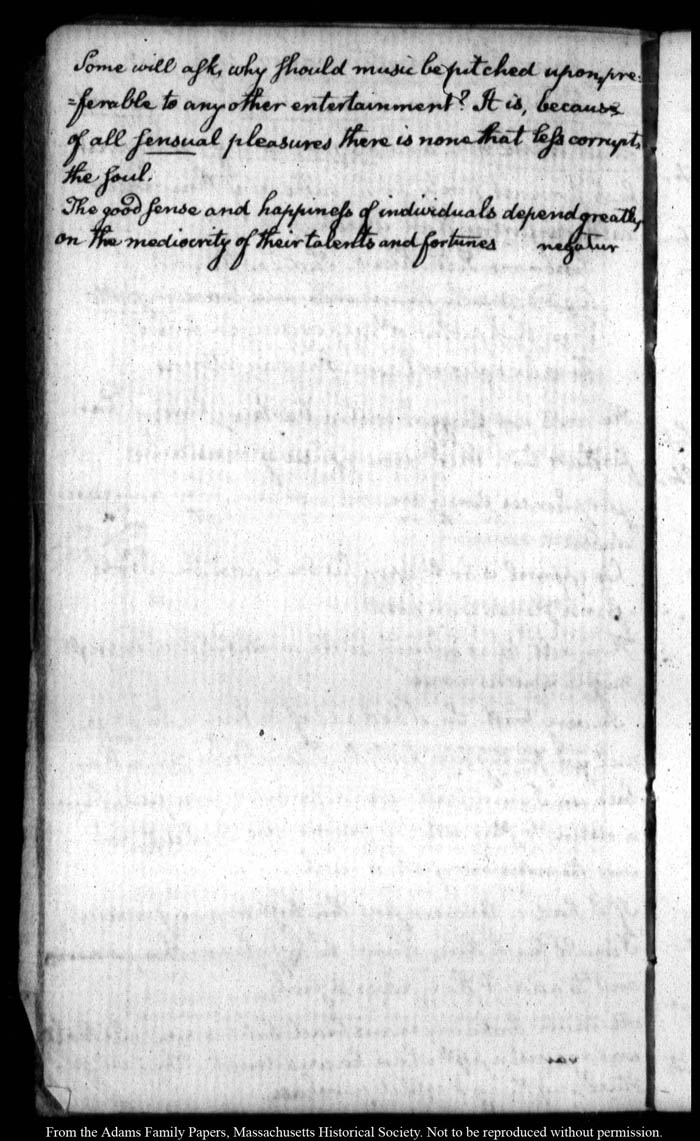 Some will ask, why should music be pitched upon, pre=
=ferable to any other entertainment? It is, because
of all sensual pleasures there is none that less corrupts
the soul.
The good sense and happiness of individuals depend greatly
on the mediocrity of their talents and fortunes negatur
From the Adams Family Papers, Massachusetts Historical Society. Not to be reproduced without permission.